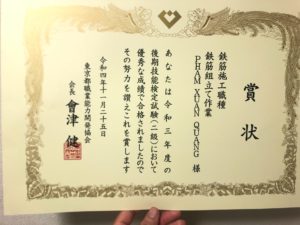 賞状
鉄筋施工職種
鉄筋組立て作業
PHAM XUAN QUANG 様
あなたは令和三年度の
後期技能検定試験(二級)において
優秀な成績で合格されましたので
その努力を讃えこれを賞します
令和四年十一月二十五日
東京都職業能力開発協会
会長 會津 健